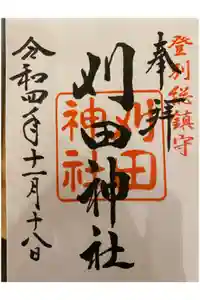 登別総鎮守
奉拝
刈田神社
刈田
神社
令和四年十一月十八日